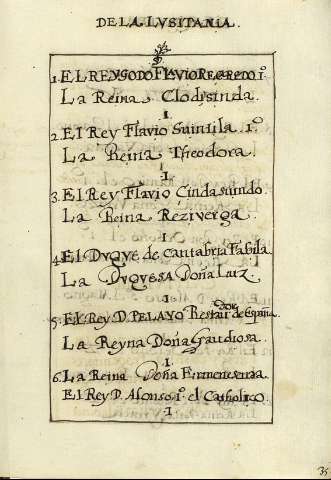 DE LA LVSITANIA.
1. EL REY GODO FLAVIO RECAREDO 1º
La Reina Clodisinda.
I
2. El Rey Flavio Suintila. 1º.
La Reina Theodora.
I
3. El Rey Flavio Cindasuindo.
La Reina Reziverga.
I
4. El DVQVE de Cantabria Fabila
La DVQVESA Doña Luz.
I
5. El Rey D. PELAYO Restaudor de España
La Reyna Doña Gaudiosa.
I
6. La Reina Doña Ermenesenda.
El Rey D. Alonso 1º. el Catholico.
I
35